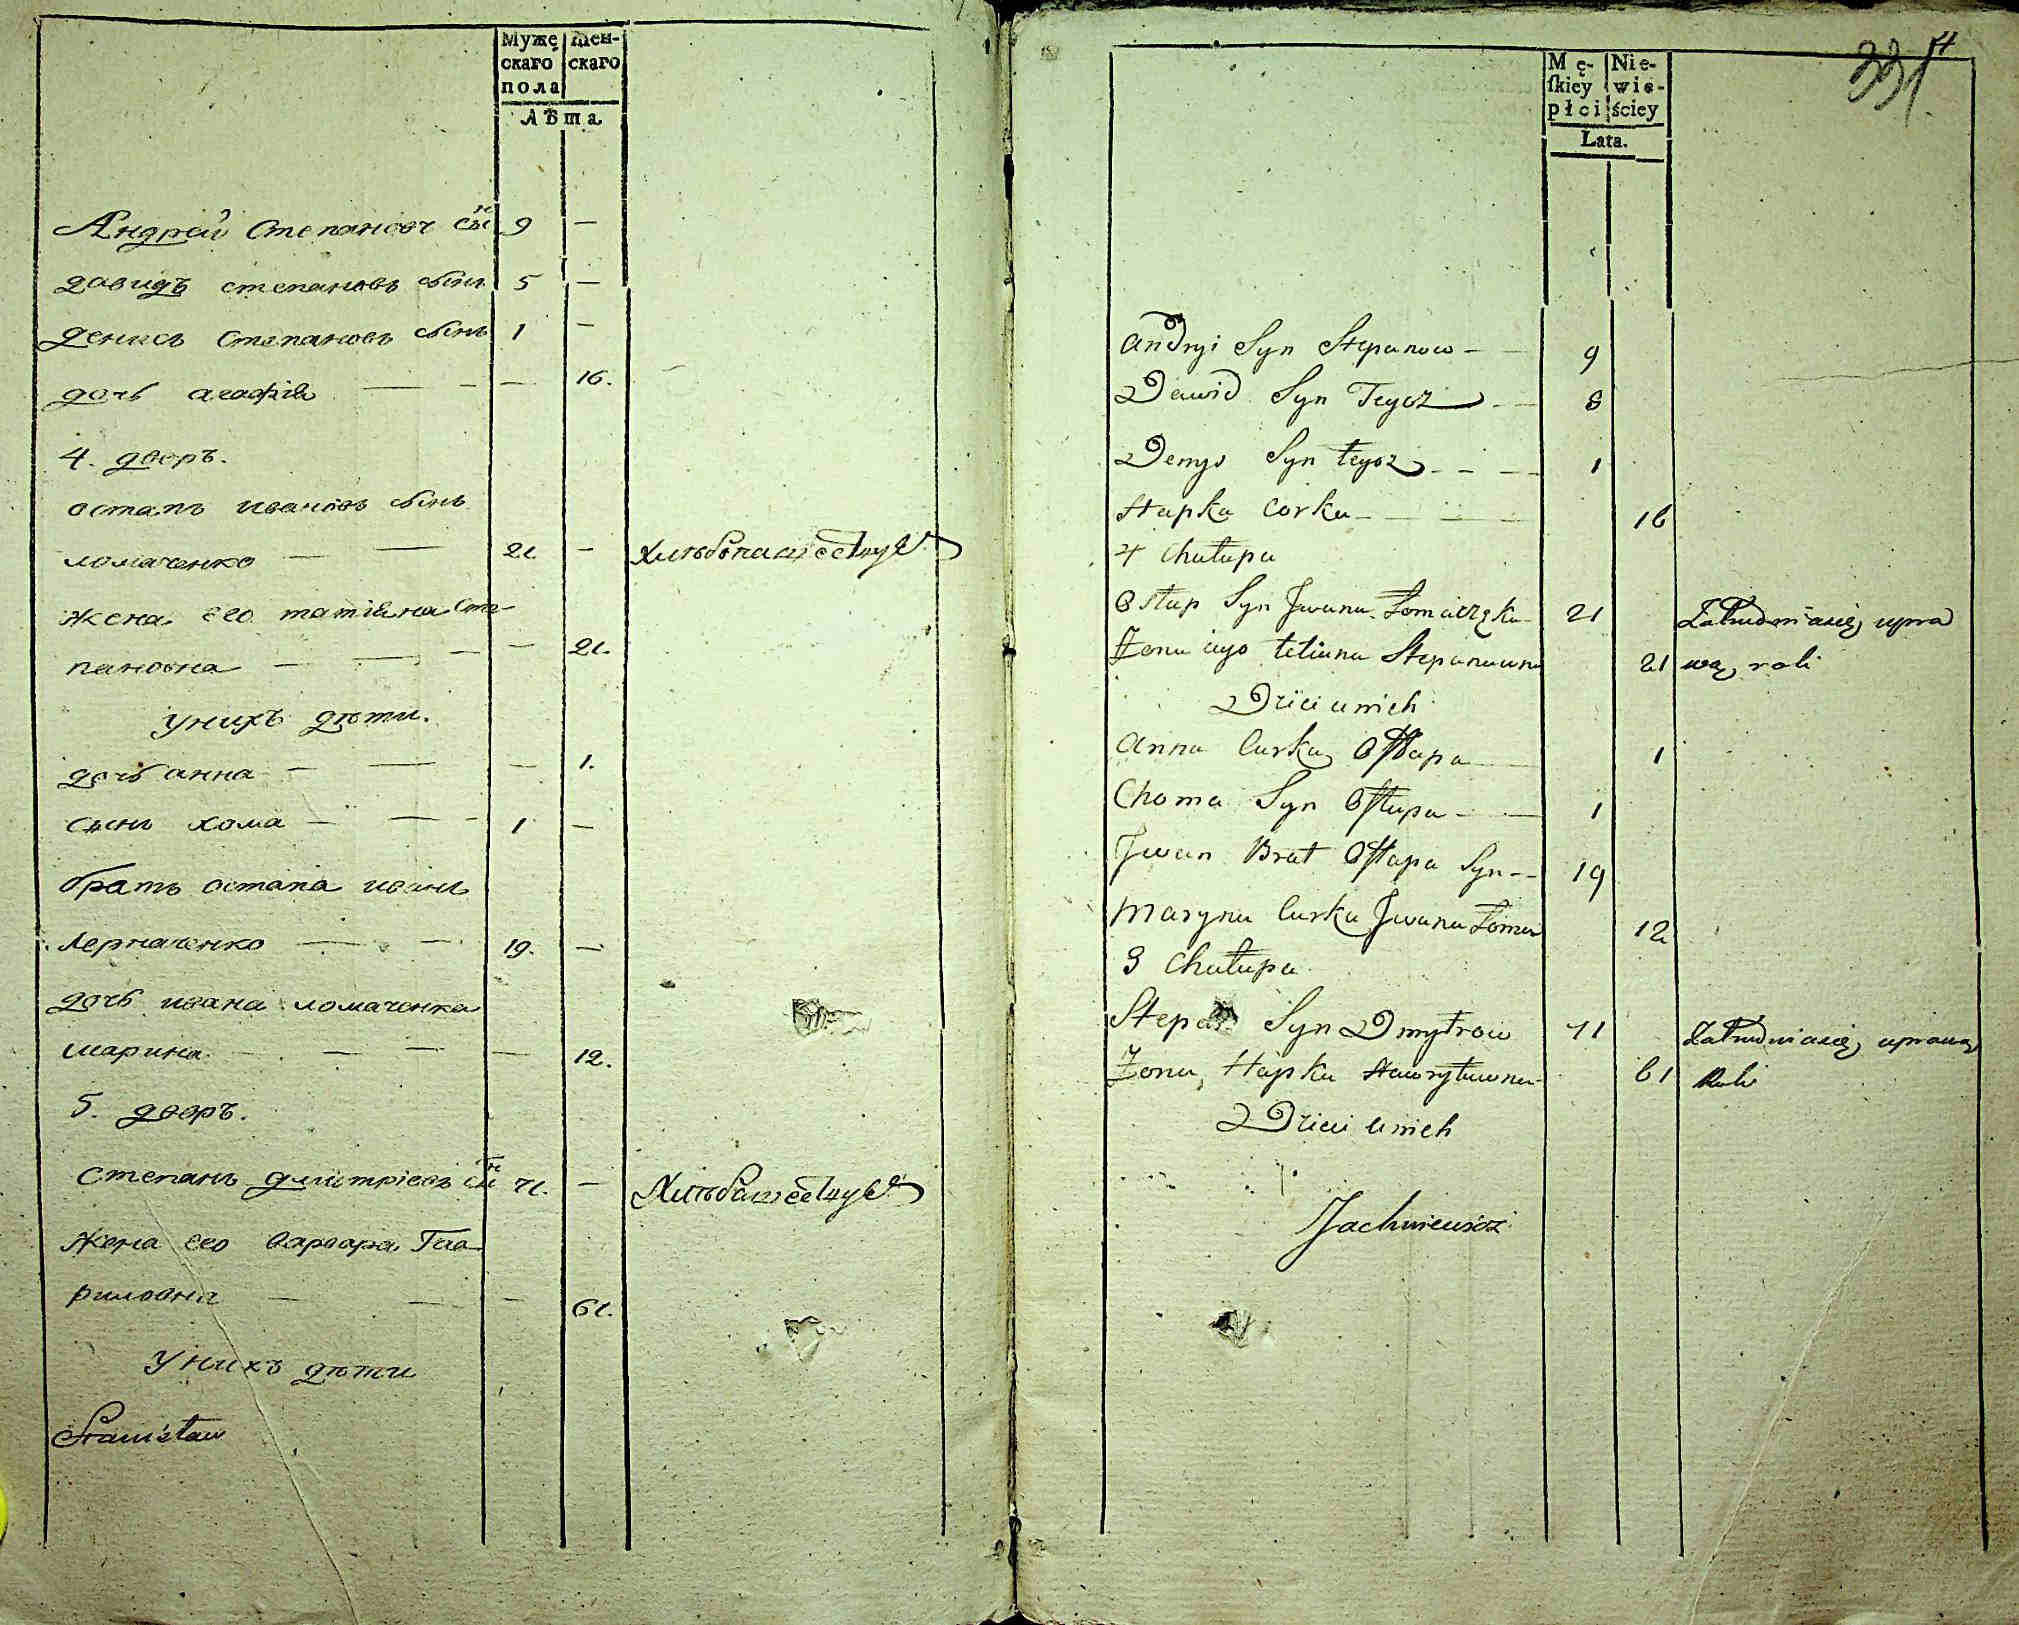 Муже женскаго
скаго скаго
пола
Лѣта
Андрей Степановъ сынъ 9 —
Давидъ степановъ сынъ 5 —
Денисъ Степановъ сынъ 1 —
дочь агафія — — — 16.
4. дворъ.
остапъ ивановъ сынъ
ломаченко — — 21 —
жена его татіяна Сте-
пановна — — — — 21.
у нихъ дѣти.
дочь анна — — — 1.
сынъ хома — — 1 —
братъ остапа иванъ
— — 19. —
дочь ивана ломаченка
марина — — — — 12.
5. дворъ.
Степанъ дмитріевъ сынъ 71. —
жена его варвара Гав-
риловна — — — 61.
у нихъ дѣти
Stanisław
Mę- Nie-
ſkiey wie-
płci ściey
Lata.
331
Andryi Syn Stepanow — 9
Dawid Syn Tegoż — 8
Denys Syn tegoż — — — 1
Hapka Corka — — — 16
4 Chałupa
Ostap Syn Jwana Łomaczęka 21 Zatrudnia się upra
Żona iego tetiana Stepanowna 21 wą roli
Dzieci u nich
Anna Curka Ostapa — 1
Choma Syn Ostapa — — 1
Jwan Brat Ostapa Syn — — 19
Maryna Curka Jwana Łoma 12
3 Chałupa
Stepan Syn Dmytrow 71 Zatrudnia się uprawą
Żona, Hapka Hawryłowna 61 Roli
Dzieci u nich
Jachniewicz